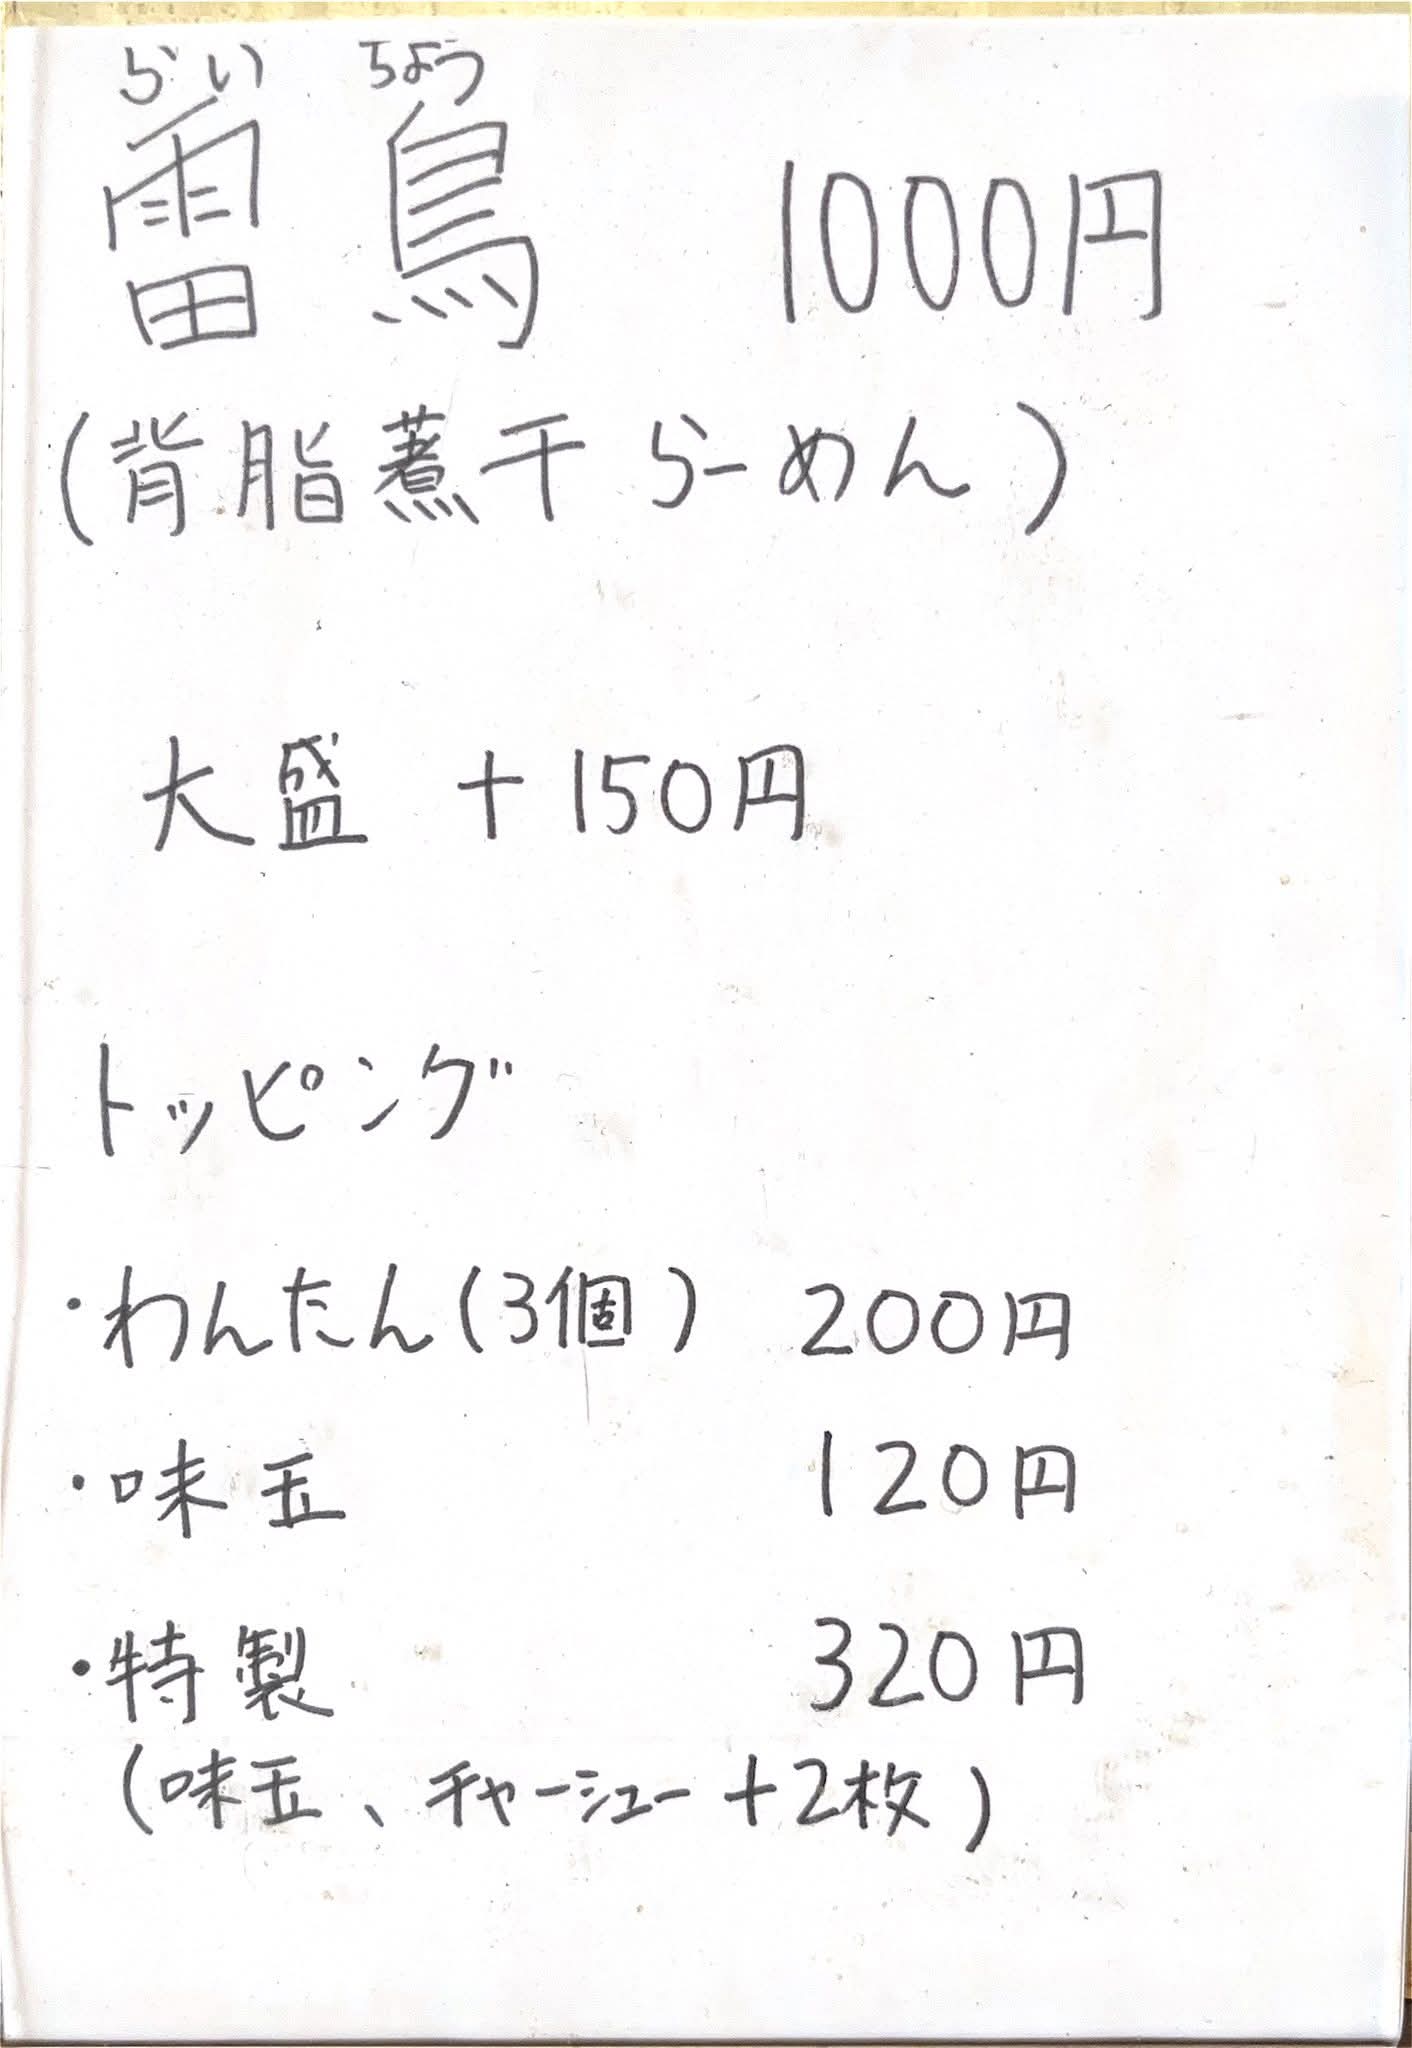 らい ちょう
雷鳥 1000円
(背脂煮干らーめん)
大盛 +150円
トッピング
・わんたん(3個) 200円
・味玉 120円
・特製 320円
(味玉、チャーシュー+2枚)